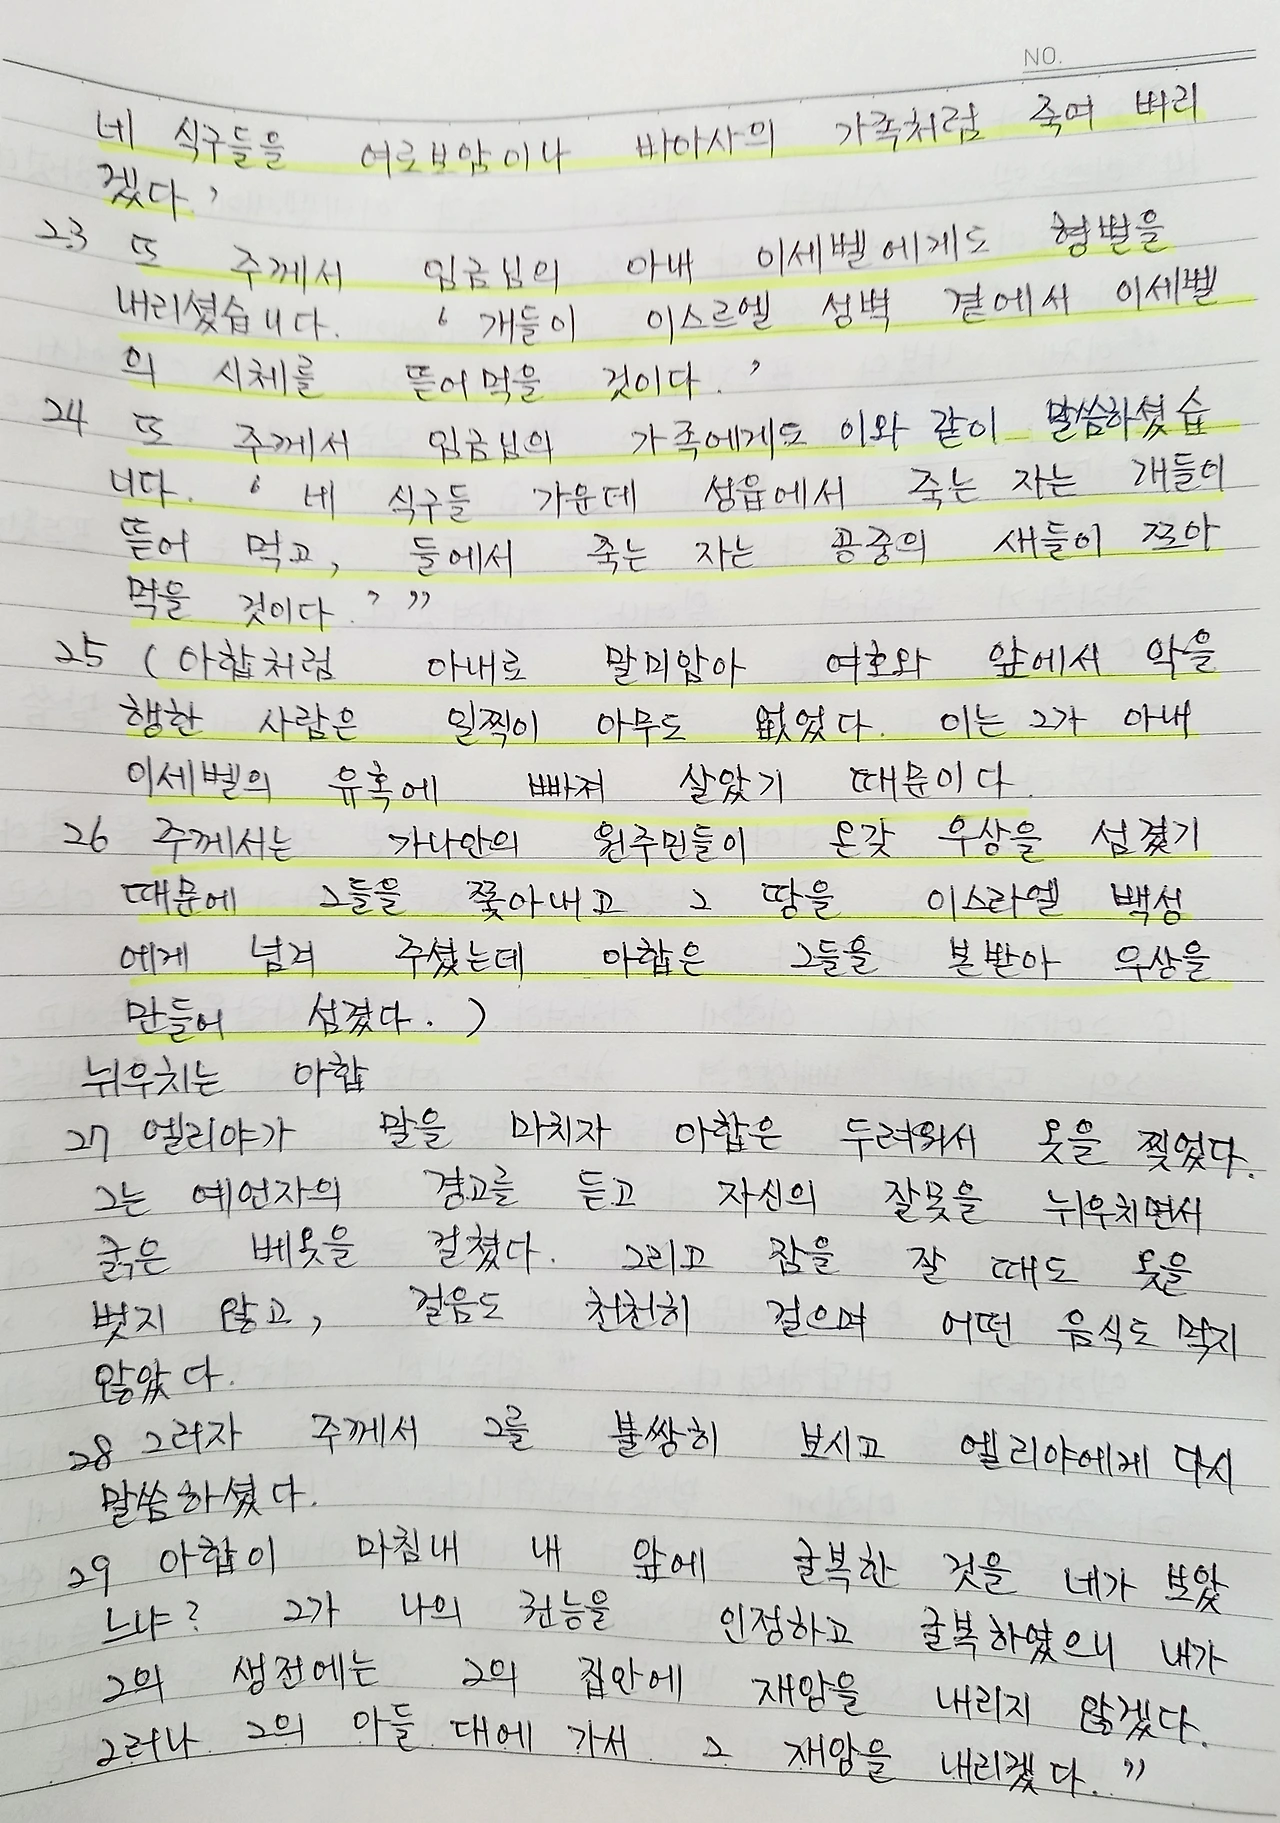 NO.
네 식구들을 여로보암이나 바아사의 가족처럼 죽여 버리
겠다.’
23 또 주께서 임금님의 아내 이세벨에게도 형벌을
내리셨습니다. ‘개들이 이스르엘 성벽 곁에서 이세벨
의 시체를 뜯어먹을 것이다.’
24 또 주께서 임금님의 가족에게도 이와 같이 말씀하셨습
니다. ‘네 식구들 가운데 성읍에서 죽는 자는 개들이
뜯어 먹고, 들에서 죽는 자는 공중의 새들이 쪼아
먹을 것이다.’”
25 (아합처럼 아내로 말미암아 여호와 앞에서 악을
행한 사람은 일찍이 아무도 없었다. 이는 그가 아내
이세벨의 유혹에 빠져 살았기 때문이다.
26 주께서는 가나안의 원주민들이 온갖 우상을 섬겼기
때문에 그들을 쫓아내고 그 땅을 이스라엘 백성
에게 넘겨 주셨는데 아합은 그들을 본받아 우상을
만들어 섬겼다.)
뉘우치는 아합
27 엘리야가 말을 마치자 아합은 두려워서 옷을 찢었다.
그는 예언자의 경고를 듣고 자신의 잘못을 뉘우치면서
굵은 베옷을 걸쳤다. 그리고 잠을 잘 때도 옷을
벗지 않고, 걸음도 천천히 걸으며 어떤 음식도 먹지
않았다.
28 그러자 주께서 그를 불쌍히 보시고 엘리야에게 다시
말씀하셨다.
29 아합이 마침내 내 앞에 굴복한 것을 네가 보았
느냐? 그가 나의 권능을 인정하고 굴복하였으니 내가
그의 생전에는 그의 집안에 재앙을 내리지 않겠다.
그러나 그의 아들 대에 가서 그 재앙을 내리겠다.”